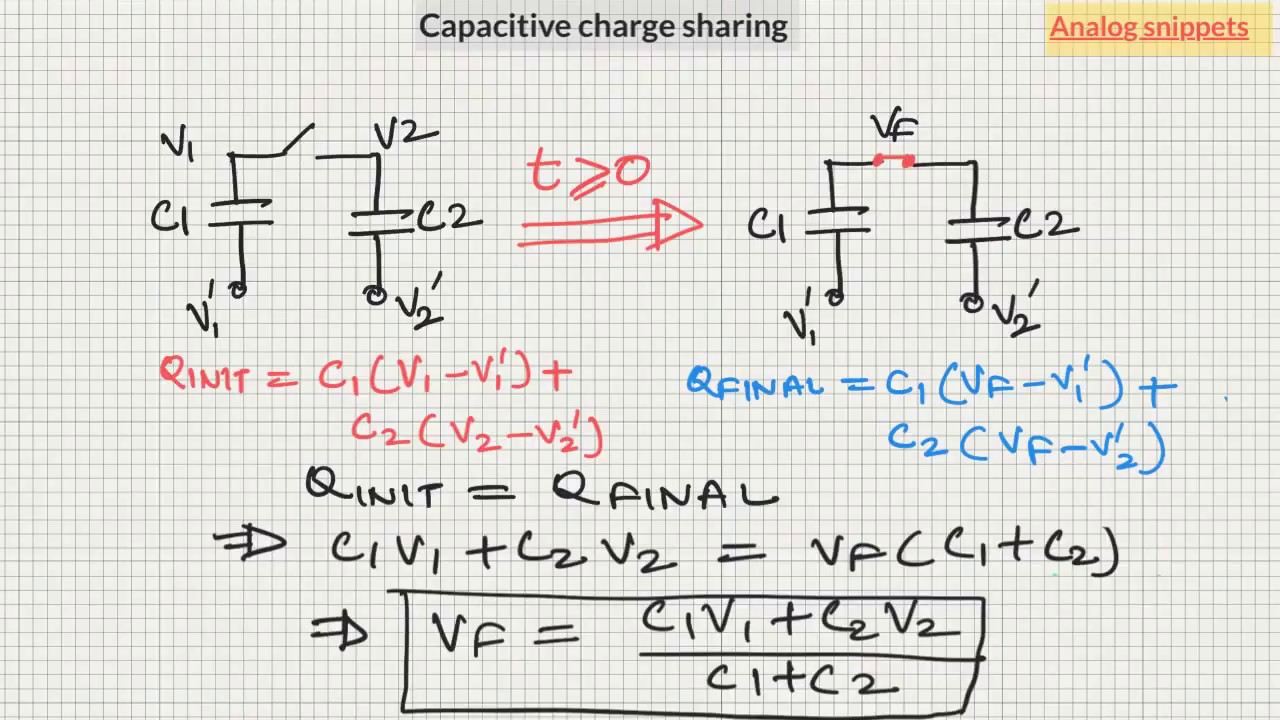 Capacitive charge sharing
Analog snippets
V1 V2
C1 C2
V1' V2'
t ⩾ 0
VF
C1 C2
V1' V2'
QINIT = C1(V1 - V1') +
C2(V2 - V2')
QFINAL = C1(VF - V1') +
C2(VF - V2')
QINIT = QFINAL
⇒ C1V1 + C2V2 = VF(C1 + C2)
⇒ VF = C1V1 + C2V2
C1 + C2